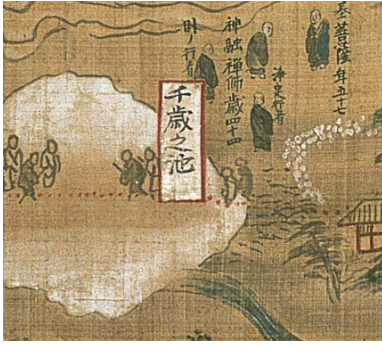 基菩薩年五十七
浄定行者
神融禪師歳四十四
ノ行者
千歳之池